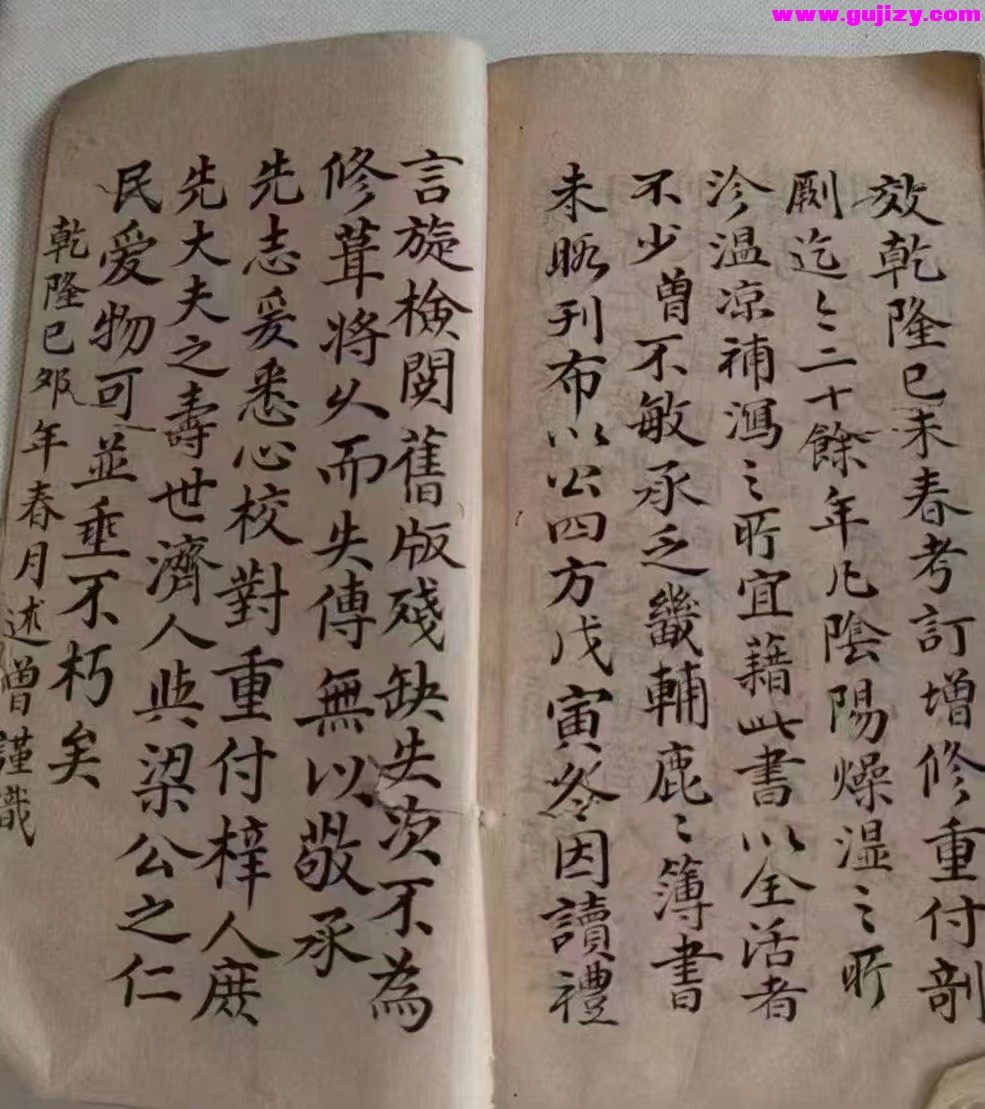 www.gujizy.com
效乾隆已未春考訂增修重付剞
劂迄今二十餘年凡陰陽燥湿之所
沴温凉補瀉之所宜藉此書以全活者
不少曽不敏承乏畿輔鹿之簿書
未暇刊布以公四方戊寅冬因讀禮
言旋檢閱舊版殘缺失次不為
修葺將久而失傳無以敬承
先志爰悉心校對重付梓人庶
先大夫之壽世濟人與梁公之仁
民爱物可並垂不朽矣
乾隆已夘年春月述曽謹識